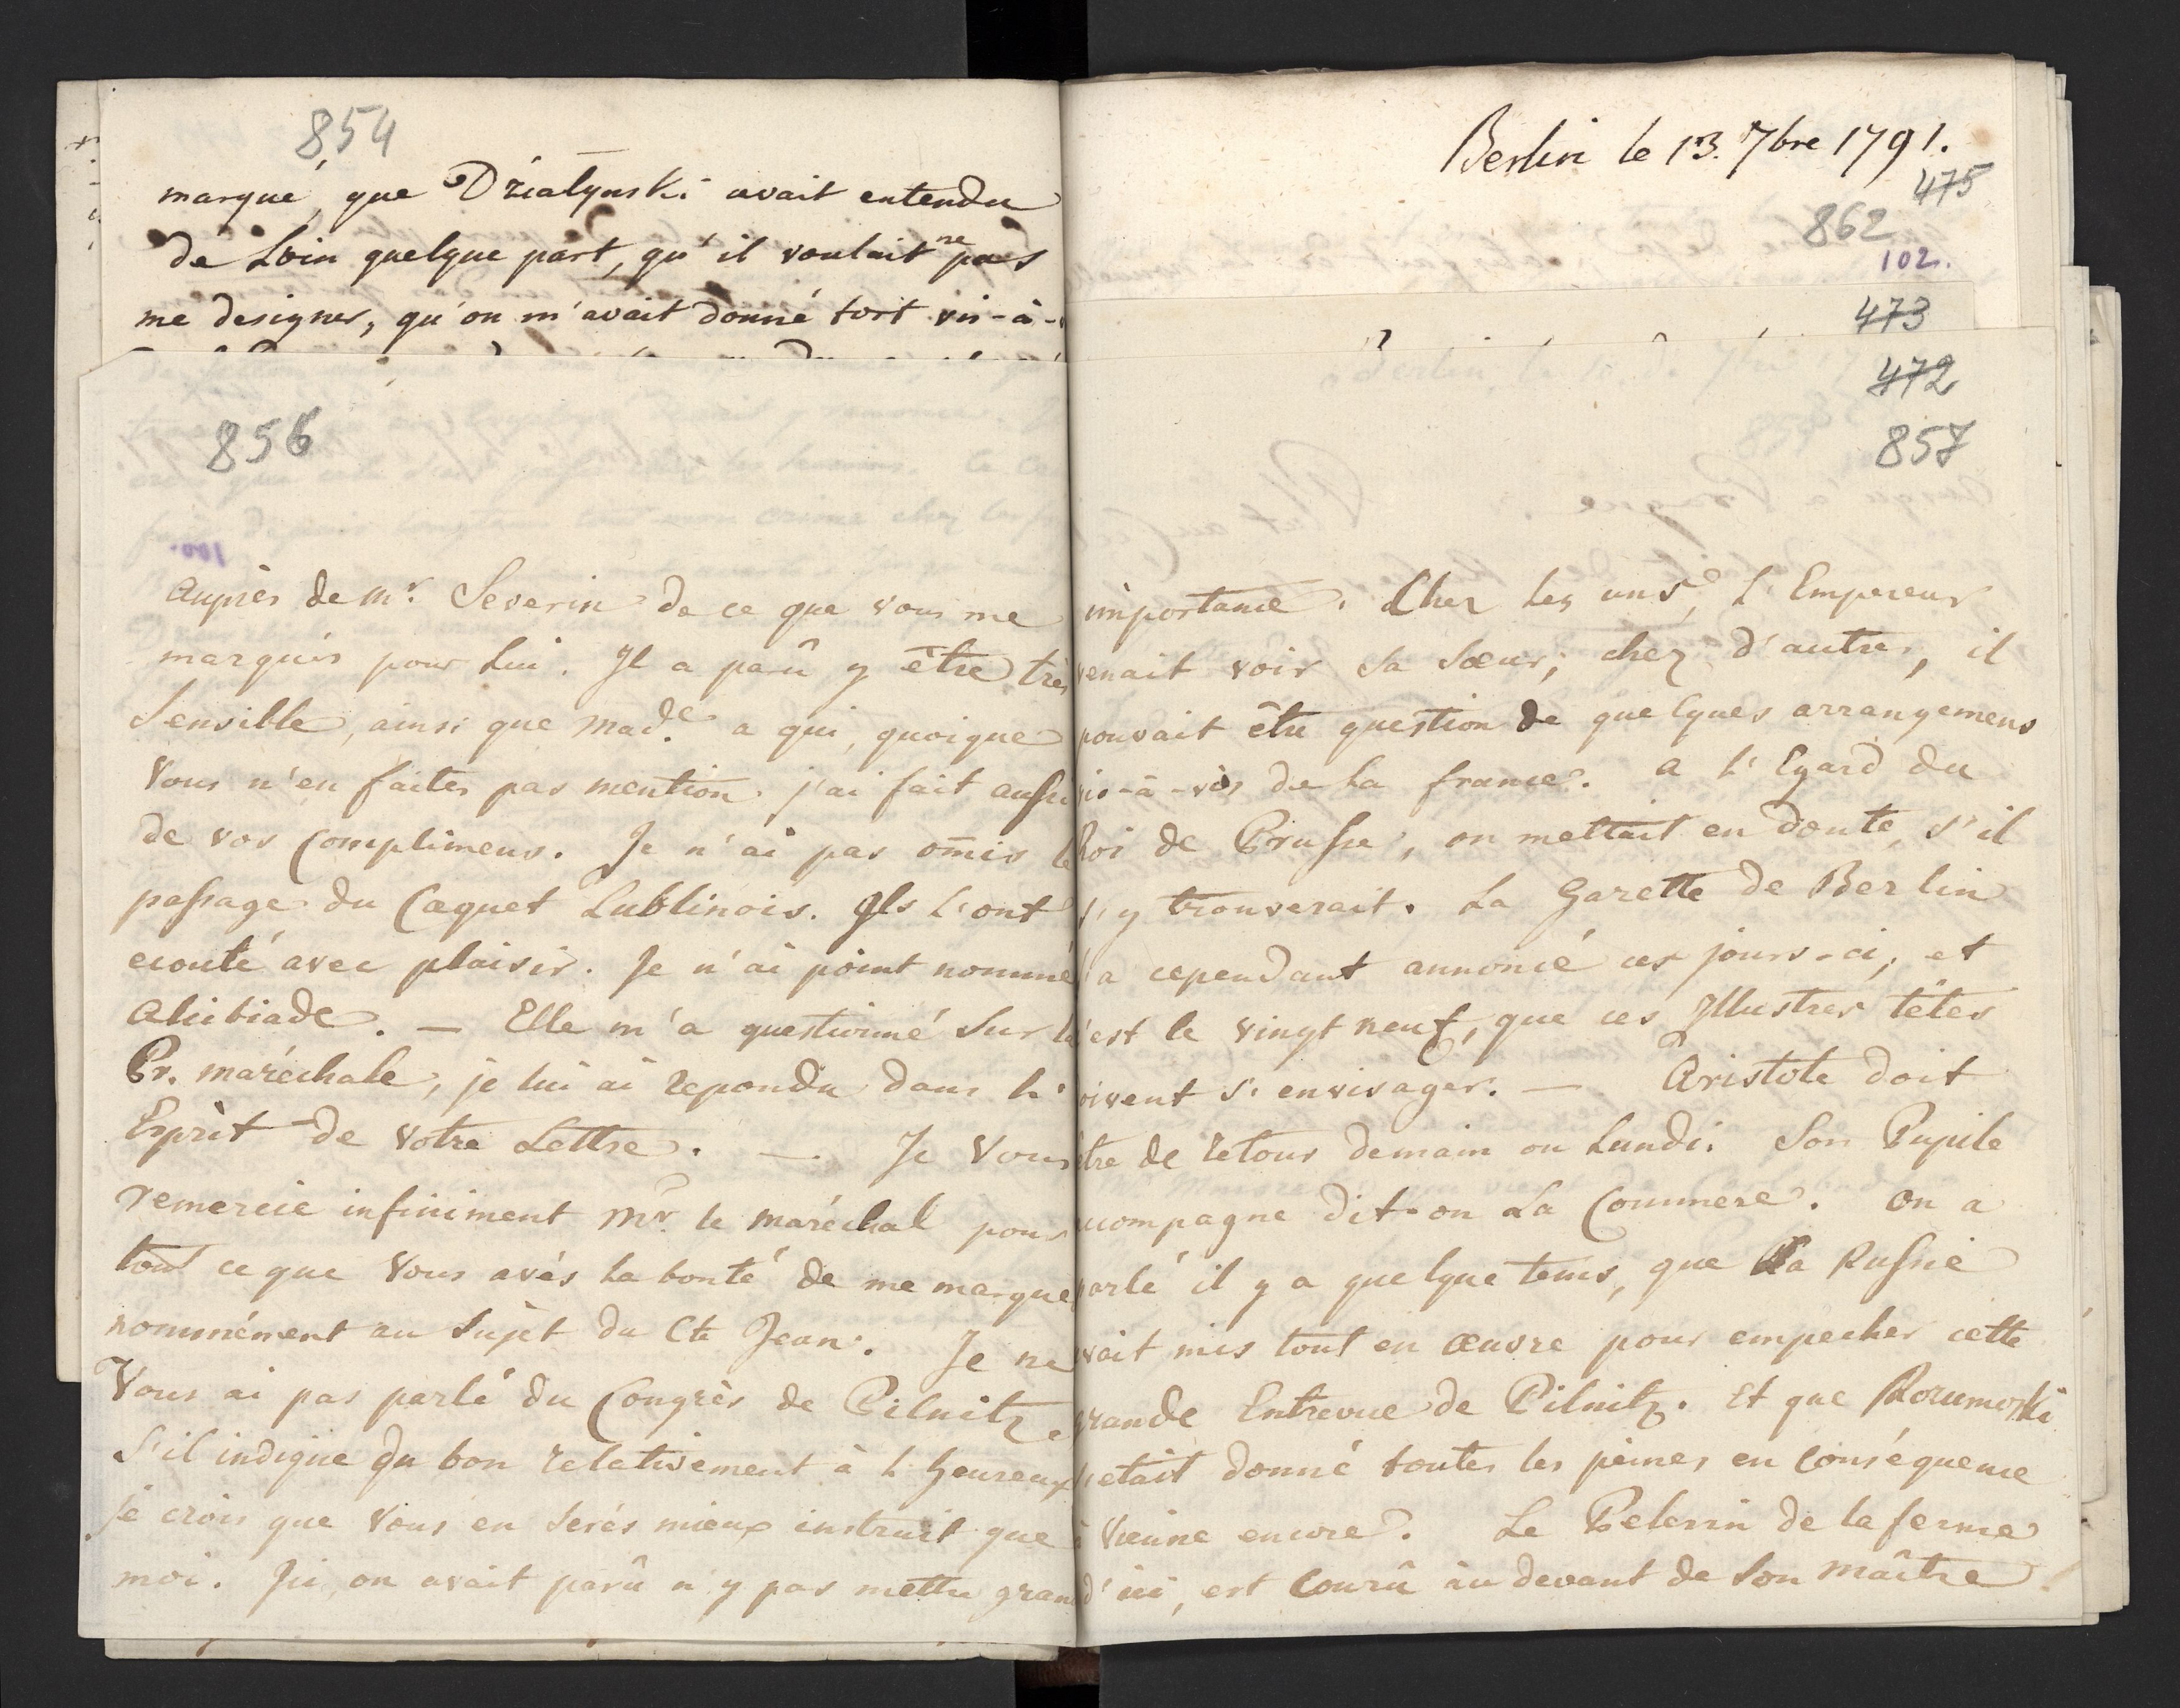 854
marqué, que Dzialynski avait entendu
de Loin quelque part, qu'il voulait ne pas
me designer, qu'on m'avait donné tort vis-à-
856
100.
Auprès de Mr. Severin de ce que vous me
marquès pour Lui. Il a parû y être très
Sensible, ainsi que Made. a qui, quoique
Vous n'en faites pas mention. j'ai fait aussi
de vos Complimens. Je n'ai pas omis le
passage du Caquet Lublinois. Ils L'ont
ecouté avec plaisir. Je n'ai point nommé
Alcibiade. — Elle m'a questionné Sur la
Pr. maréchale, je lui ai repondu dans L'
Esprit de votre Lettre. — Je Vous
remercie infiniment Mr. le maréchal pour
tout ce que Vous avés la bonté de me marque
nommément au Sujet du Cte Jean. Je ne
Vous ai pas parlé du Congrès de Pilnitz.
S'il indique du bon relativement à L'heureux
je crois que Vous en Serés mieux instruit que
moi. Ici, on avait parû n'y pas mettre gran
Berlin le 13. 7bre 1791.
475
862
102.
473
472
857
importance. Chez Les uns, L'Empereur
venait voir Sa Sœur; chez d'autres, il
pouvait être question de quelques arrangemens
vis-à-vis de La france. a L'Egard du
Roi de Prusse, on mettait en doute, s'il
s'y trouverait. La Gazette de Berlin
l'a cependant annoncé ces jours-ci, et
c'est le vingt neuf, que ces Illustres têtes
oivent S'envisager. — Aristote doit
être de retour demain ou Lundi. Son Pupile
accompagne dit-on La Commere. On a
parlé il y a quelque tems, que La Russie
avait mis tout en œuvre pour empecher cette
grande Entrevue de Pilnitz. Et que Rozumoski
s'etait donné toutes les peines en Conséquence
à Vienne encore. Le Pelerin de la ferme
d'ici, est Courû au devant de Son Maître.